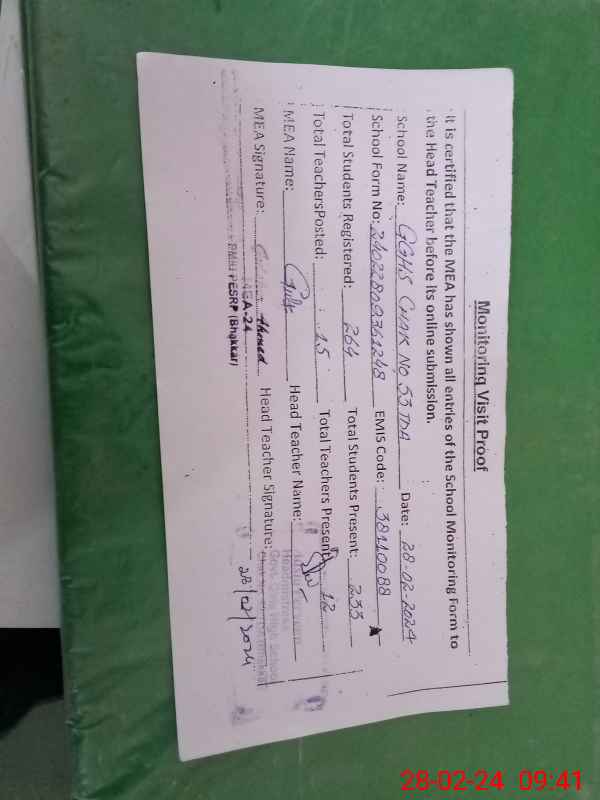 Monitoring Visit Proof
It is certified that the MEA has shown all entries of the School Monitoring Form to
the Head Teacher before its online submission.
School Name: GGHS CHAK NO 53 TDA Date: 28-02-2024
School Form No: 24022800361248 EMIS Code: 38110088
Total Students Registered: 264 Total Students Present: 233
Total TeachersPosted: 15 Total Teachers Present: 12
MEA Name: Head Teacher Name:
MEA Signature: Ahmed Head Teacher Signature:
Headmistress
Govt. Girls High School
28/02/2024
PMIU PESRP (Bhakkar)
28-02-24 09:41